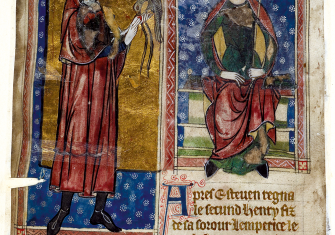 Apres Esteuen regna
le secund henry fiz
de sa sorour lemperice le